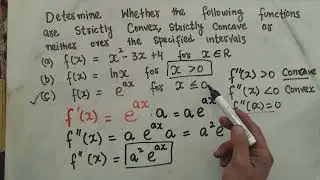 Determine Whether the following functions
are Strictly Convex, Strictly Concave or
neither over the specified intervals
(a) f(x) = x² - 3x + 4 for x ∈ R
(b) f(x) = ln x for x > 0
✓(c) f(x) = e^{ax} for x ≤ 0
f''(x) > 0 Concave
f''(x) < 0 Convex
f''(x) = 0
f'(x) = e^{ax} · a = a e^{ax}
f''(x) = a e^{ax} · a = a² e^{ax}
f''(x) = a² e^{ax}